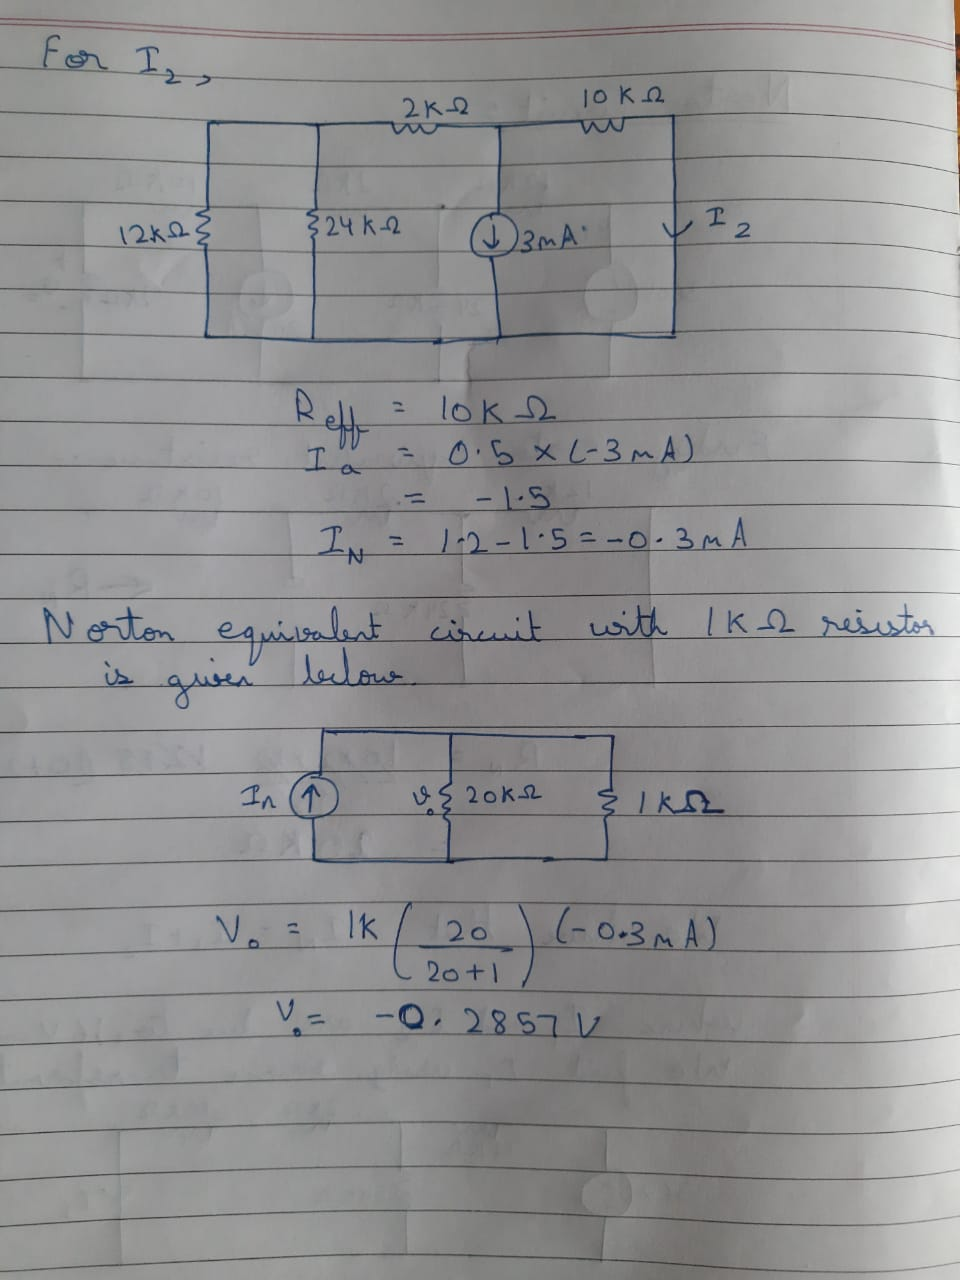 For I₂,
2KΩ 10KΩ
12KΩ 24KΩ ↓ 3mA I₂
R_eff = 10KΩ
I_a = 0.5 × (-3mA)
= -1.5
I_N = 1.2-1.5=-0.3mA
Norton equivalent circuit with 1KΩ resistor
is given below.
In ↑ v₀ 20KΩ 1KΩ
V₀ = 1K (20/20+1) (-0.3mA)
V₀ = -0.2857V